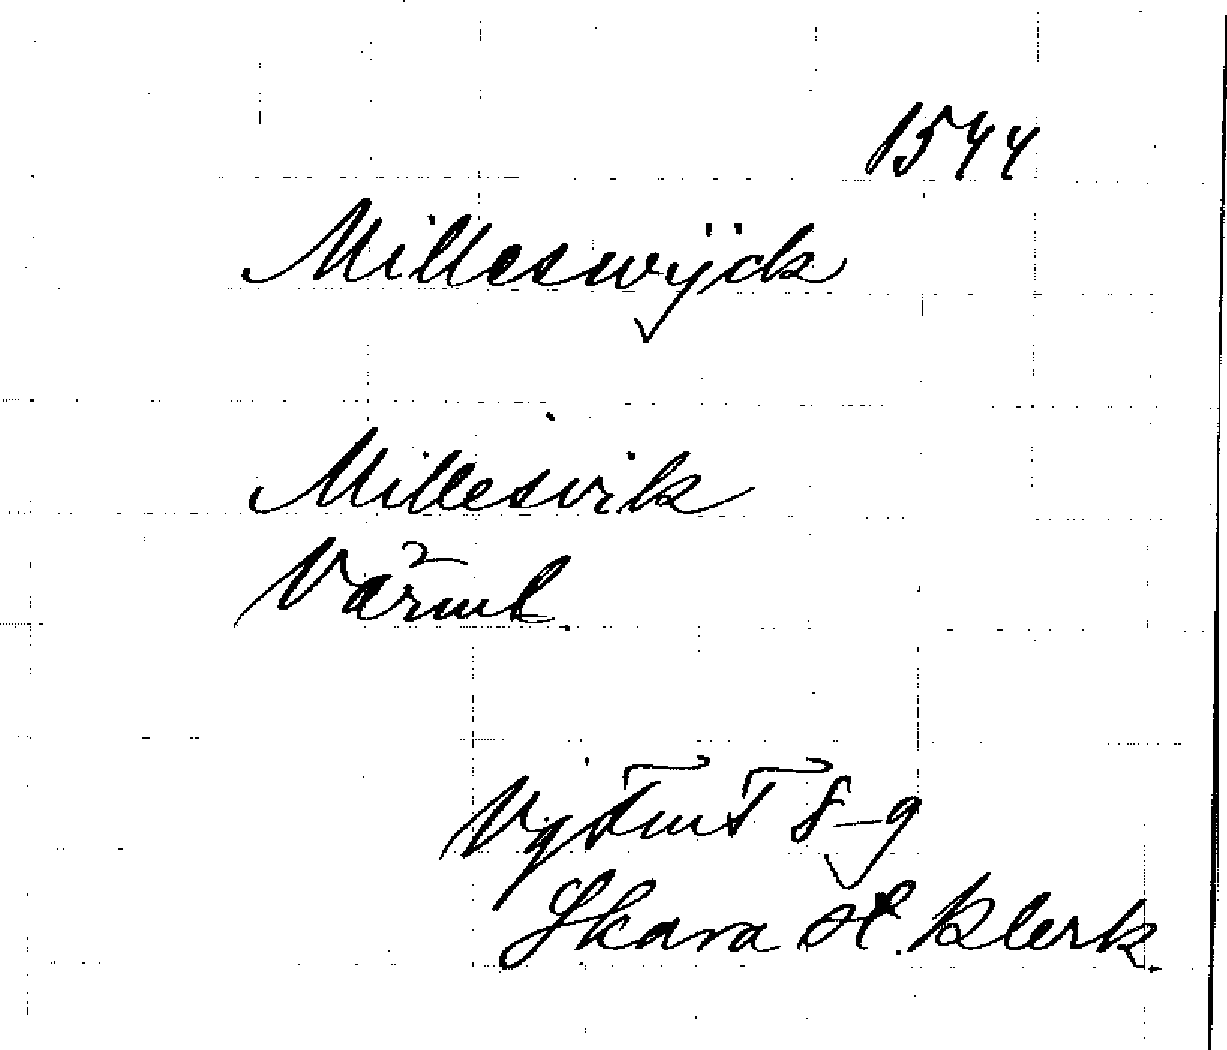 1544
Milleswÿck
Millesvik
Värml.
Vg TmT 8-9
Skara st. Klerk.